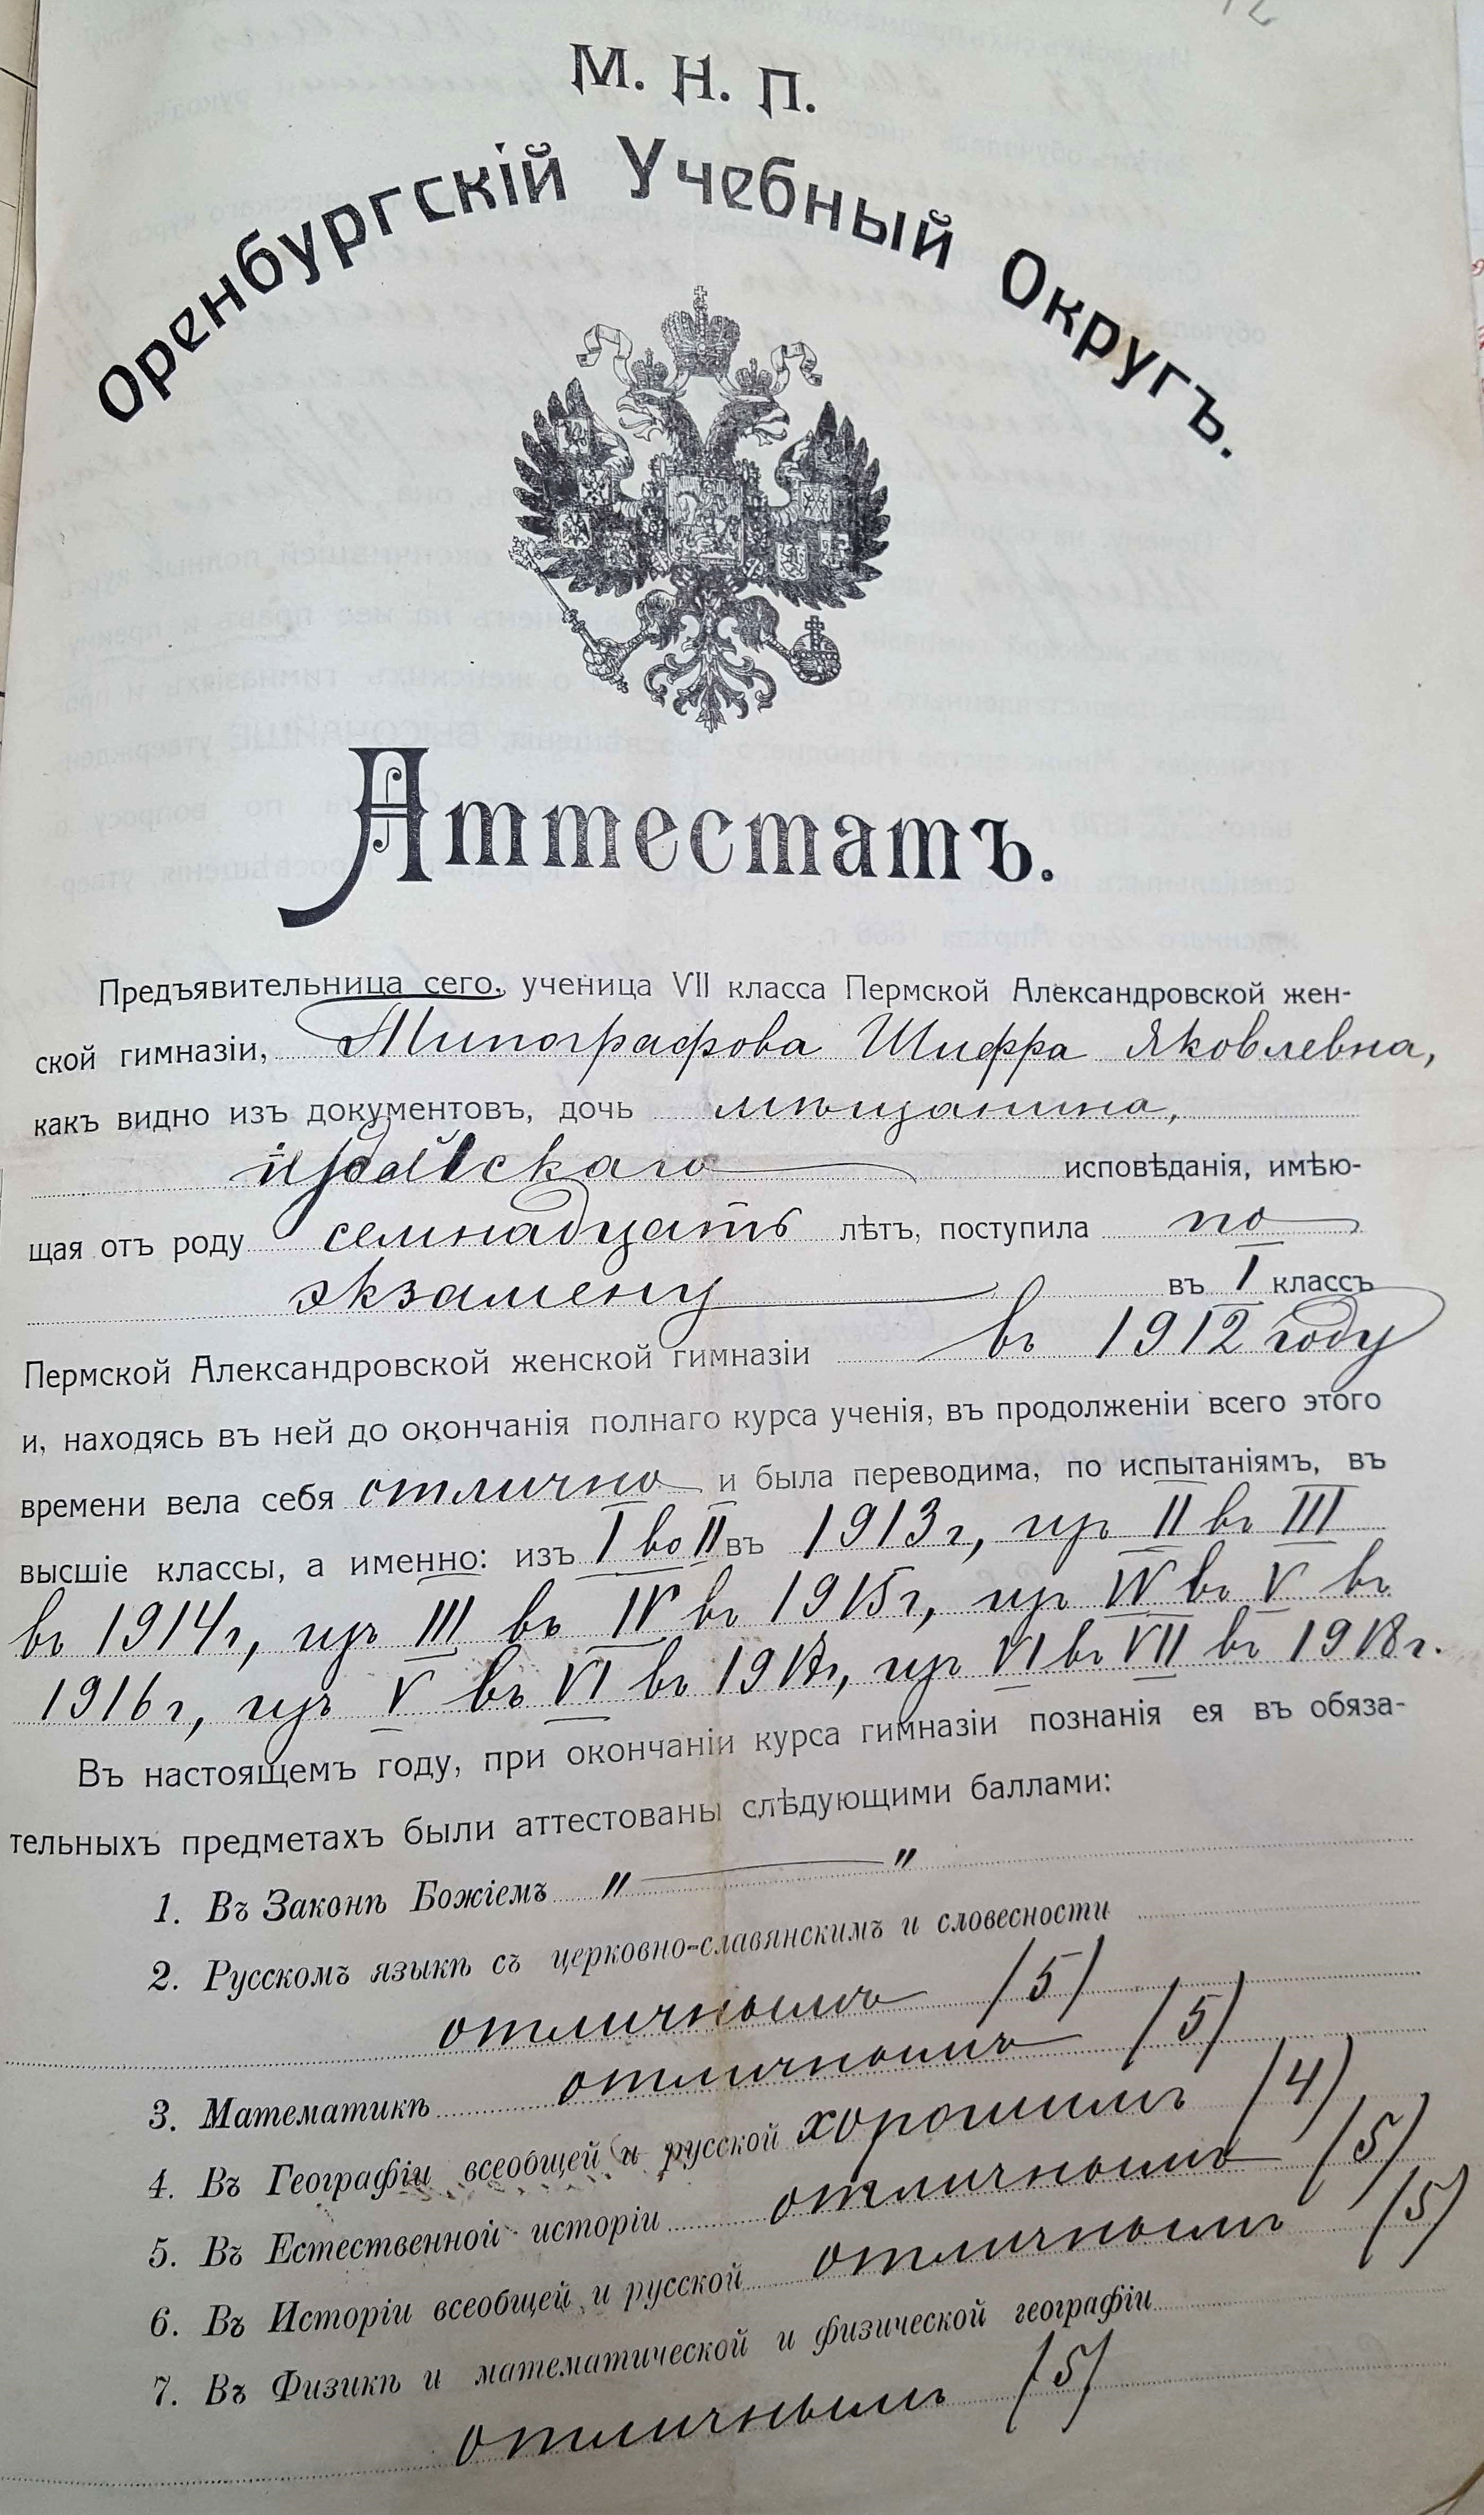 М. Н. П.
Оренбургскій Учебный Округъ.
Аттестатъ.
Предъявительница сего, ученица VII класса Пермской Александровской жен-
ской гимназіи, Типографова Шифра Яковлевна,
какъ видно изъ документовъ, дочь мѣщанина,
іудейскаго исповѣданія, имѣю-
щая отъ роду семнадцать лѣтъ, поступила по
экзамену въ I классъ
Пермской Александровской женской гимназіи въ 1912 году
и, находясь въ ней до окончанія полнаго курса ученія, въ продолженіи всего этого
времени вела себя отлично и была переводима, по испытаніямъ, въ
высшіе классы, а именно: изъ I во II въ 1913 г, изъ II въ III
въ 1914 г, изъ III въ IV въ 1915 г, изъ IV въ V въ
1916 г, изъ V въ VI въ 1917 г, изъ VI въ VII въ 1918 г.
Въ настоящемъ году, при окончаніи курса гимназіи познанія ея въ обяза-
тельныхъ предметахъ были аттестованы слѣдующими баллами:
1. Въ Законѣ Божіемъ " — "
2. Русскомъ языкѣ съ церковно-славянскимъ и словесности
отличнымъ /5/
3. Математикѣ отличнымъ /5/
4. Въ Географіи всеобщей и русской хорошимъ /4/
5. Въ Естественной исторіи отличнымъ /5/
6. Въ Исторіи всеобщей и русской отличнымъ /5/
7. Въ Физикѣ и математической и физической географіи
отличнымъ /5/